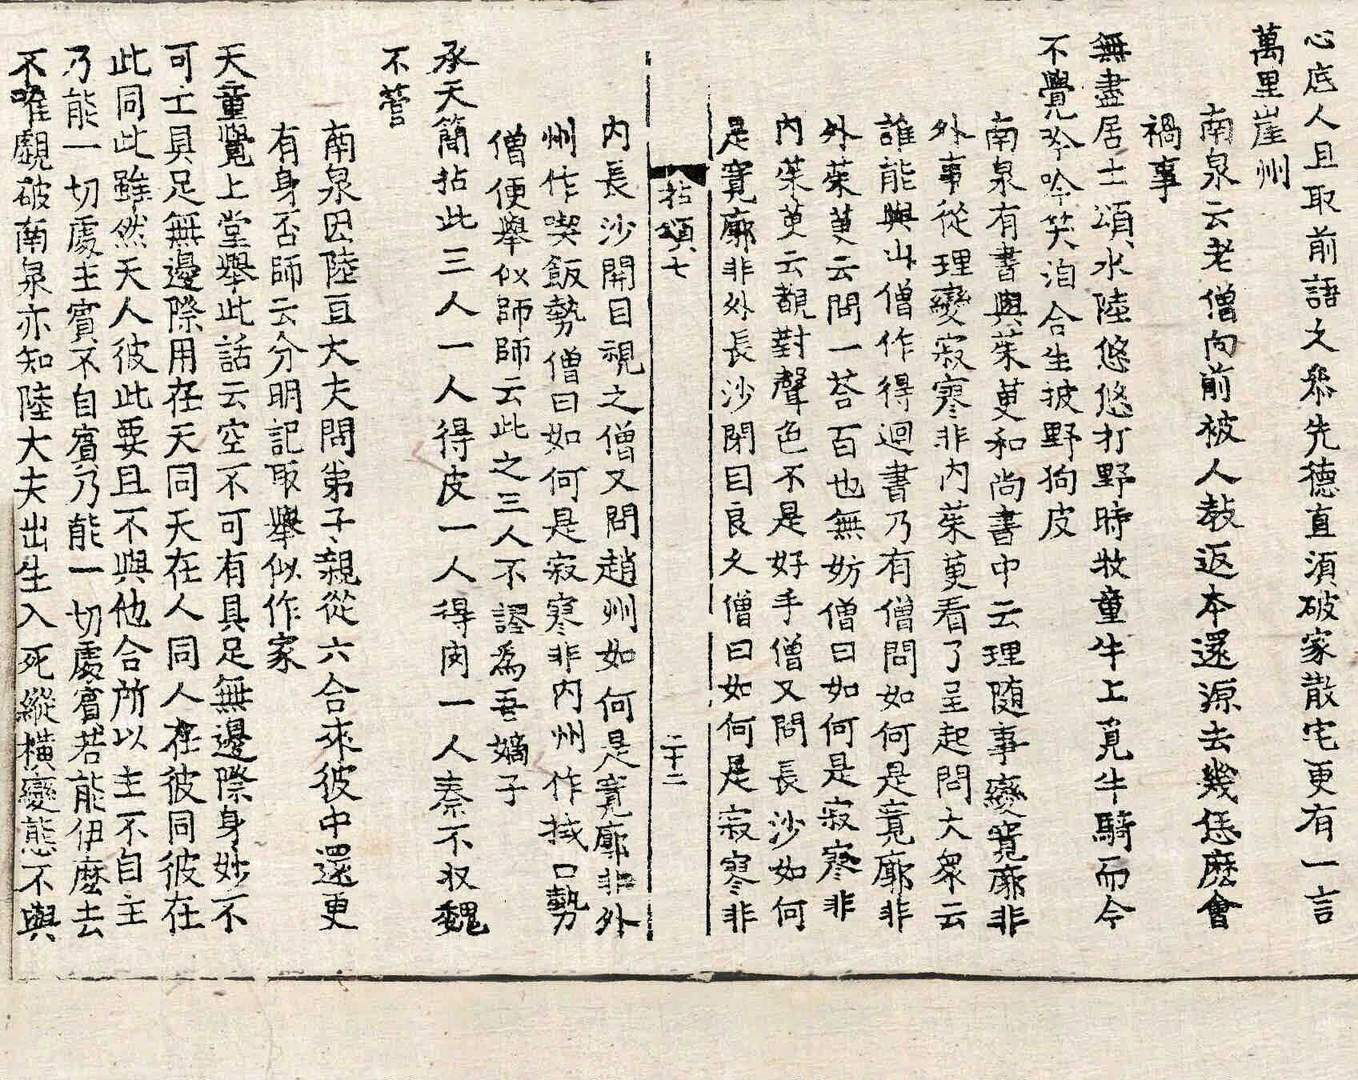 心底人且取前語又叅先德直須破家散宅更有一言
萬里崖州
南泉云老僧向前被人教返本還源去幾恁麽會
禍事
無盡居士頌水陸悠悠打野時牧童牛上覓牛騎而今
不覺吟吟笑洎合生披野狗皮
南泉有書與茱萸和尚書中云理隨事變寬廓非
外事從理變寂寥非內茱萸看了呈起問大衆云
誰能與山僧作得迴書乃有僧問如何是寬廓非
外茱萸云問一荅百也無妨僧曰如何是寂寥非
內茱萸云覩對聲色不是好手僧又問長沙如何
是寬廓非外長沙閉目良久僧曰如何是寂寥非
拈頌七
二十二
內長沙開目視之僧又問趙州如何是寬廓非外
州作喫飯勢僧曰如何是寂寥非內州作拭口勢
僧便舉似師師云此之三人不謬為吾嫡子
承天簡拈此三人一人得皮一人得肉一人秦不収魏
不管
南泉因陸亘大夫問弟子親從六合來彼中還更
有身否師云分明記取舉似作家
天童覺上堂舉此話云空不可有具足無邊際身妙不
可亡具足無邊際用在天同天在人同人在彼同彼在
此同此雖然天人彼此要且不與他合所以主不自主
乃能一切處主賓不自賓乃能一切處賓若能伊麽去
不唯覷破南泉亦知陸大夫出生入死縱橫變態不與